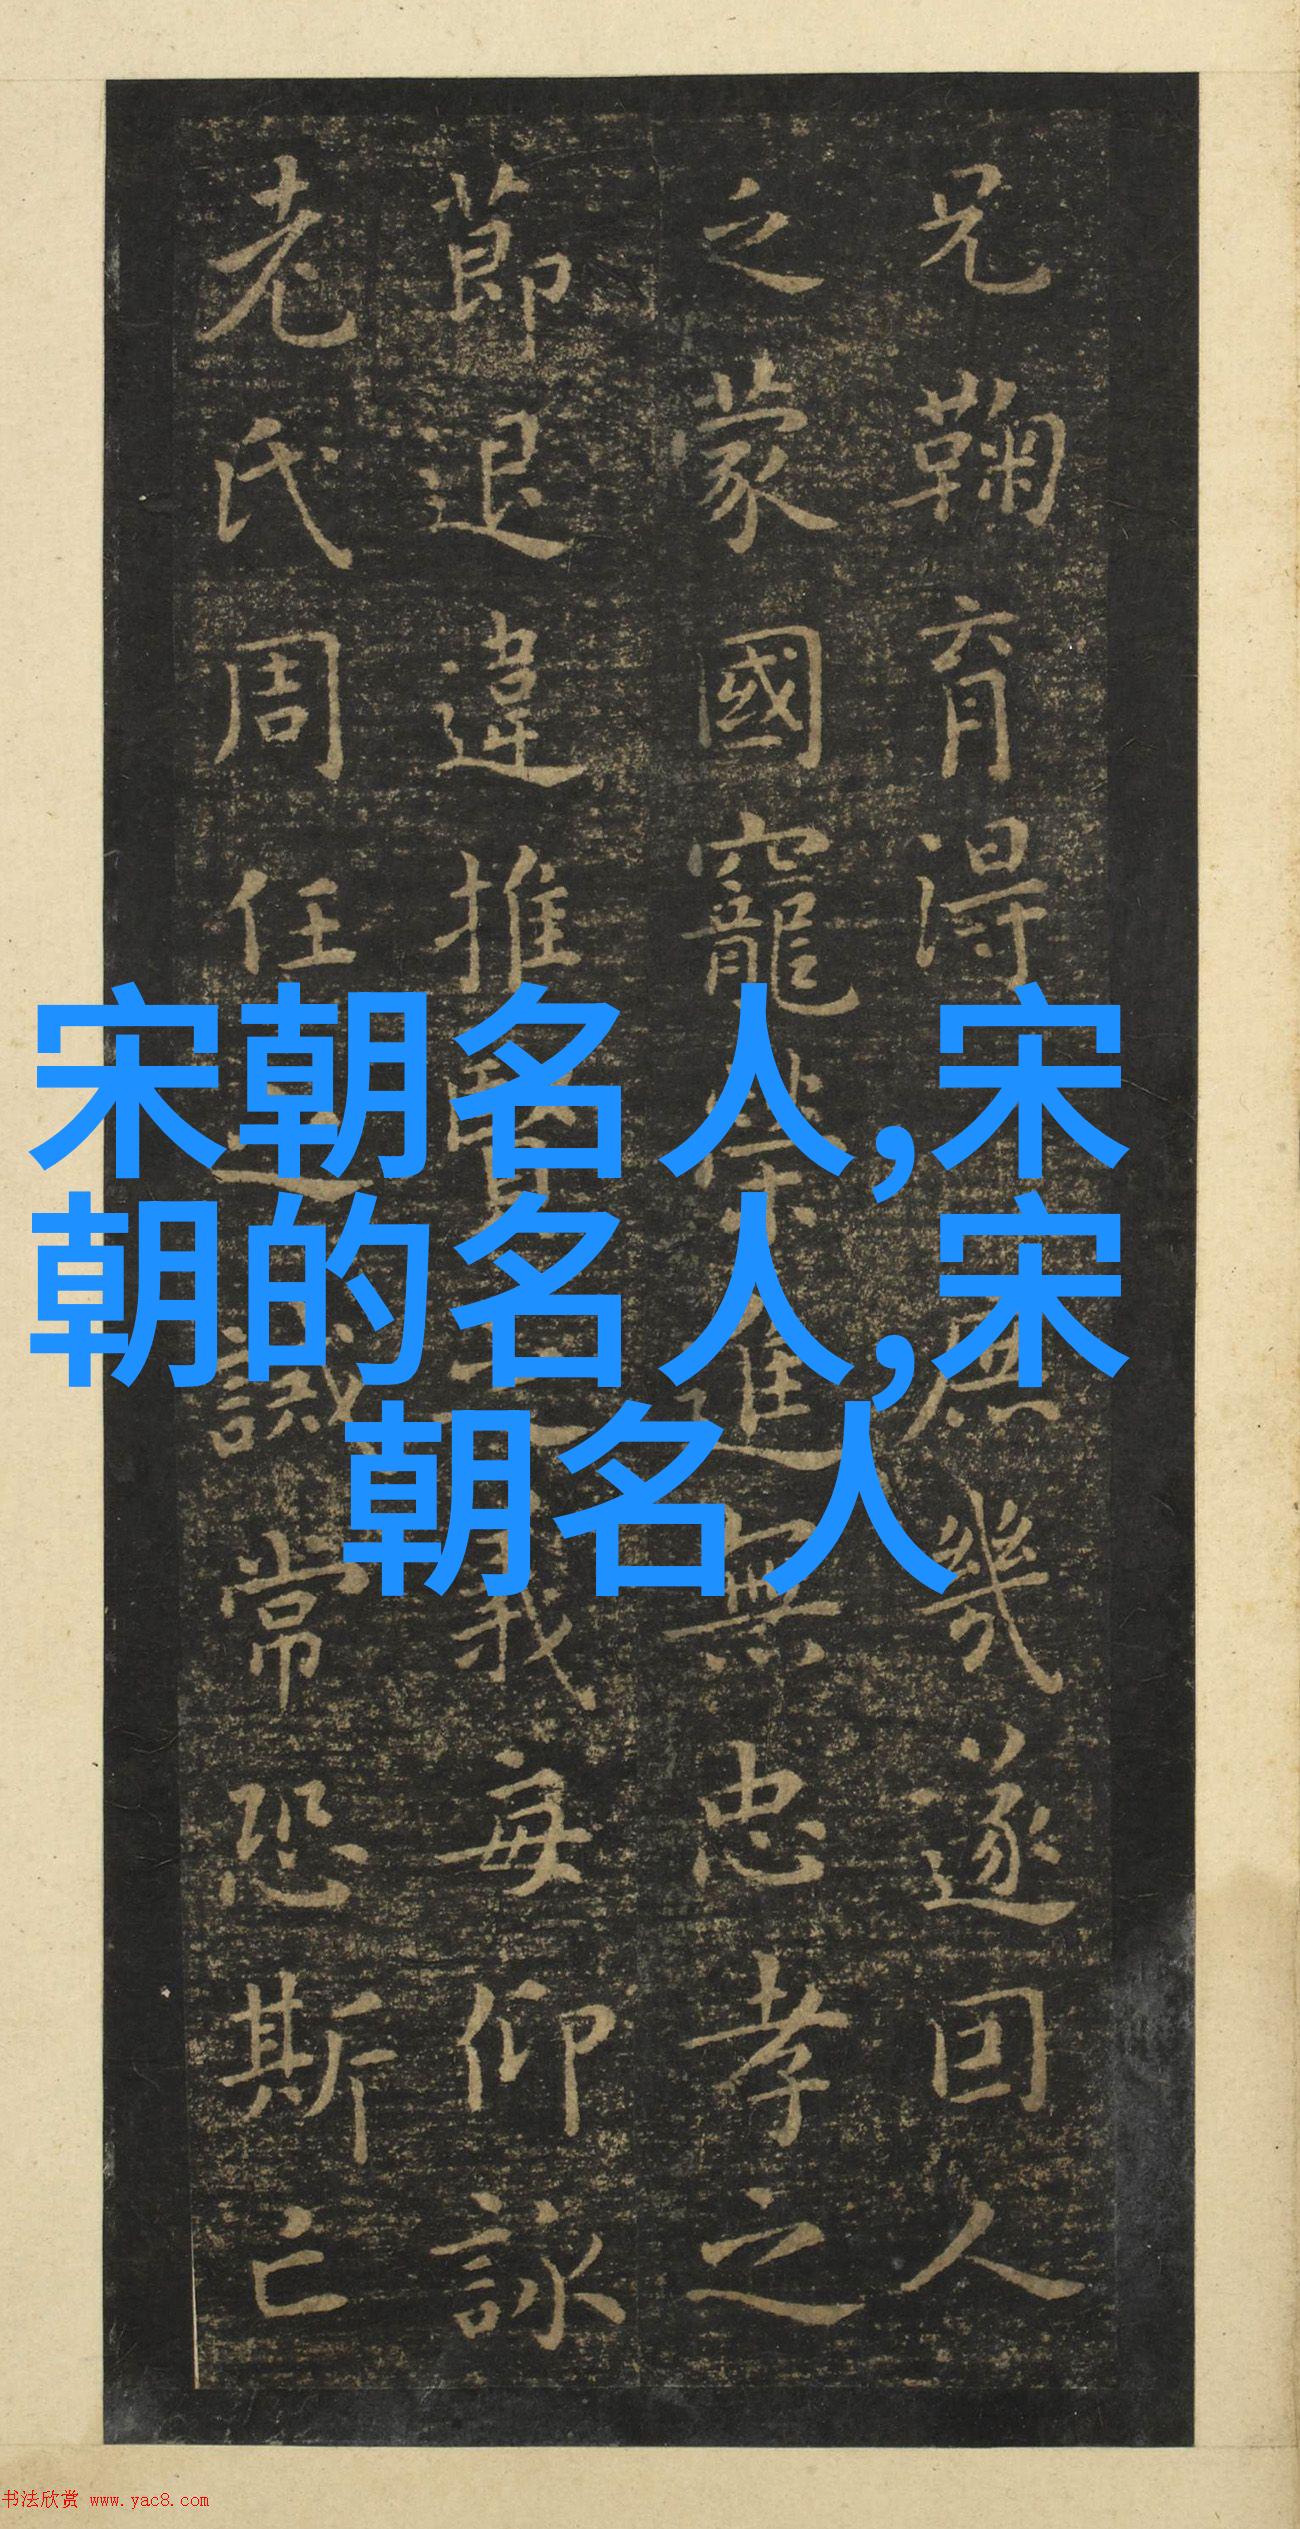 兄鞠育得庶幾遂因人
之蒙國寵榮進無忠孝之
節退違推賢之義每仰詠
老氏周任之誡常恐斯亡
宋朝名人,宋
朝的名人,宋
朝名人
书法欣赏 www.yac8.com